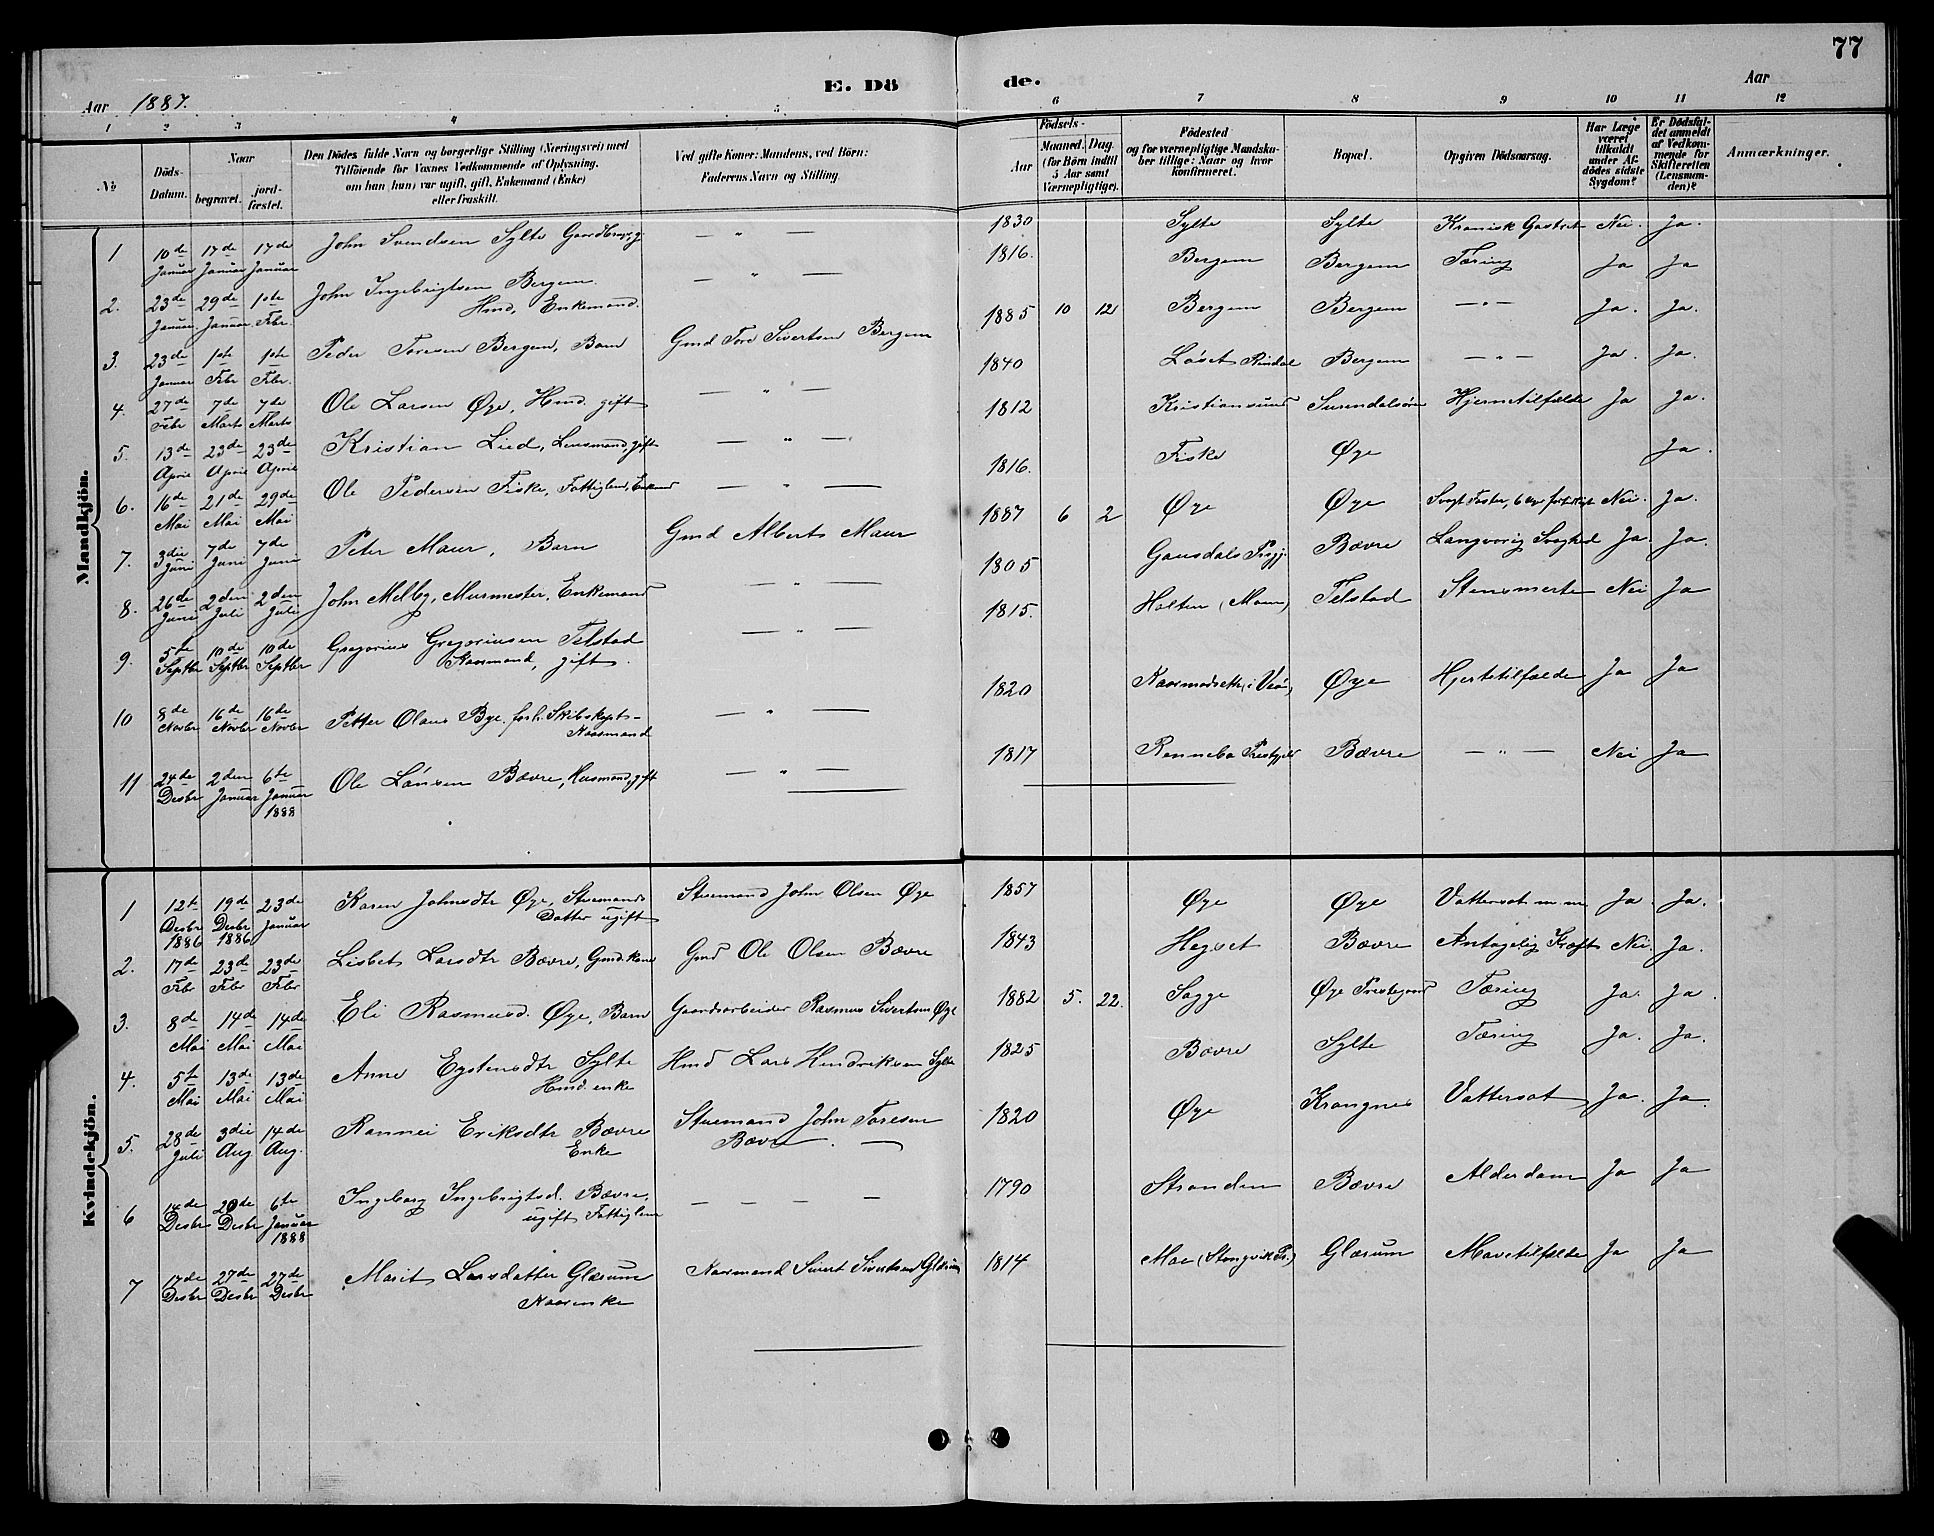 77
E. Dö de.
Aar 1887.
Aar
1 2 3 4 5 6 7 8 9 10 11 12
No
Döds-Datum.
Naar
begravet.
jord-fæstet.
Den Dödes fulde Navn og borgerlige Stilling (Næringsvei) med
Tilföiende for Voxnes Vedkommende af Oplysning,
om han (hun) var ugift, gift, Enkemand (Enke)
eller fraskilt.
Ved gifte Koner: Mandens, ved Börn:
Faderens Navn og Stilling.
Födsels-
Aar
Maaned. Dag.
(for Börn indtil
5 Aar samt
Værnepligtige).
Födested
og for værnepligtige Mandska-
ber tillige: Naar og hvor
konfirmeret.
Bopæl.
Opgiven Dödsaarsag.
Har Læge
været
tilkaldt
under Af-
dödes sidste
Sygdom?
Er Dödsfal-
det anmeldt
af Vedkom-
mende for
Skifteretten
(Lensman-
den)?
Anmærkninger.
Mandkjön.
1 10de Januar 17de Januar 17de Januar John Svendsen Sylte Gaardbrug. — " — 1830 Sylte Sylte Kronisk Gastret Nei. Ja.
2. 23de Januar 29de Januar 1ste Febr. John Ingebrigtsen Bergem. Hmd, Enkemand. — " — 1816. Bergem Bergem Tæring Ja Ja
3. 23de Januar 1ste Febr 1ste Febr. Peder Toresen Bergem, Barn Gmd Tore Sivertsen Bergem 1885 10 12 Bergem Bergem — " — Ja. Ja.
4. 27de Febr 7de Marts 7de Marts Ole Larsen Øye, Hmd. gift — " — 1840 Løset Rindal Bergem — " — Ja. Ja.
5. 13de April 23de April 23de April Kristian Lied, Lensmand, gift — " — 1812 Kristiansund Surendalsøren Hjernetilfælde Ja Ja.
6. 16de Mai 21de Mai 29de Mai Ole Pedersen Fiske, Fattiglem, Enkemd — " — 1816. Fiske Øye Ja.
7. 3die Juni 7de Juni 7de Juni Peter Maur, Barn Gmd Alberts Maur 1887 6 2 Øye Øye Svagt Foster, 6 Uger for tidligt Nei. Ja.
8. 26de Juni 2den Juli 2den Juli John Melby, Murmester, Enkemand — " — 1805 Gausdals Prgj. Bævre Langvarig Svaghed Ja. Ja.
9. 5te Septbr 10de Septbr 10de Septbr Gregorius Gregoriusen Telstad Kaarmand, gift. — " — 1815. Holten (Moen) Telstad Stensmerte Nei Ja
10 8de Novbr 16de Novbr 16de Novbr Petter Olaus Bye. forh. Skibskapt- Kaarmand — " — 1820 Øye Hjertetilfælde Ja Ja
11 24de Desbr 2den Januar 6te Januar 1888 Ole Larsen Bævre, Husmand, gift — " — 1817 Rennebo Prestgjeld Bævre — " — Nei Ja
Kvindekjön.
1 12te Desbr 1886 19de Desbr 1886 23de Januar Karen Johnsdtr Øye, Stuemands Datter ugift Stuemand John Olsen Øye 1857 Øye Øye Vattersot m m Ja. Ja.
2. 17de Febr 23de Febr 23de Febr Lisbet Larsdtr Bævre, Gmd.kone Gmd Ole Olsen Bævre 1843 Hegset Bævre Antagelig Kræft Nei. Ja.
3. 8de Mai 14de Mai 14de Mai Eli Rasmusd. Øye, Barn Gaardsarbeider Rasmus Sivertsen Øye 1882 5. 22. Sogge Øye Prestegaard Tæring Ja. Ja.
4. 5te Mai 13de Mai 13de Mai Anne Eystensdtr Sylte Hmd. enke Hmd Lars Hendriksen Sylte 1825 Bævre Sylte Tæring Ja. Ja.
5. 28de Juli 3die Aug 14de Aug. Rannei Eriksdtr Bævre Enke Stuemand John Toresen Bævre. — 1820 Øye Krangnes Vattersot Ja. Ja.
6 14de Desbr 20de Desbr 6te Januar 1888 Ingeborg Ingebrigtsd. Bævre, ugift Fattiglem — — — — 1790 Stranden Bævre Alderdom Ja Ja
7 17de Desbr 27de Desbr 27de Desbr Marit Larsdatter Glærum Kaarenke Kaarmand Sivert Sivertsen Glærum 1814 Moe (Stangvik Pr.) Glærum Mavetilfælde Ja Ja